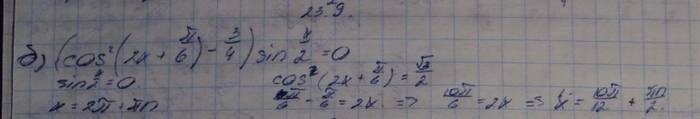 23.9.
б) (cos²(2x + π/6) - 3/4) sin x/2 = 0
sin x/2 = 0 cos²(2x + π/6) = √3/2
x = 2π + πn π/6 - π/6 = 2x => 10π/6 = 2x => x = 10π/12 + πn/2